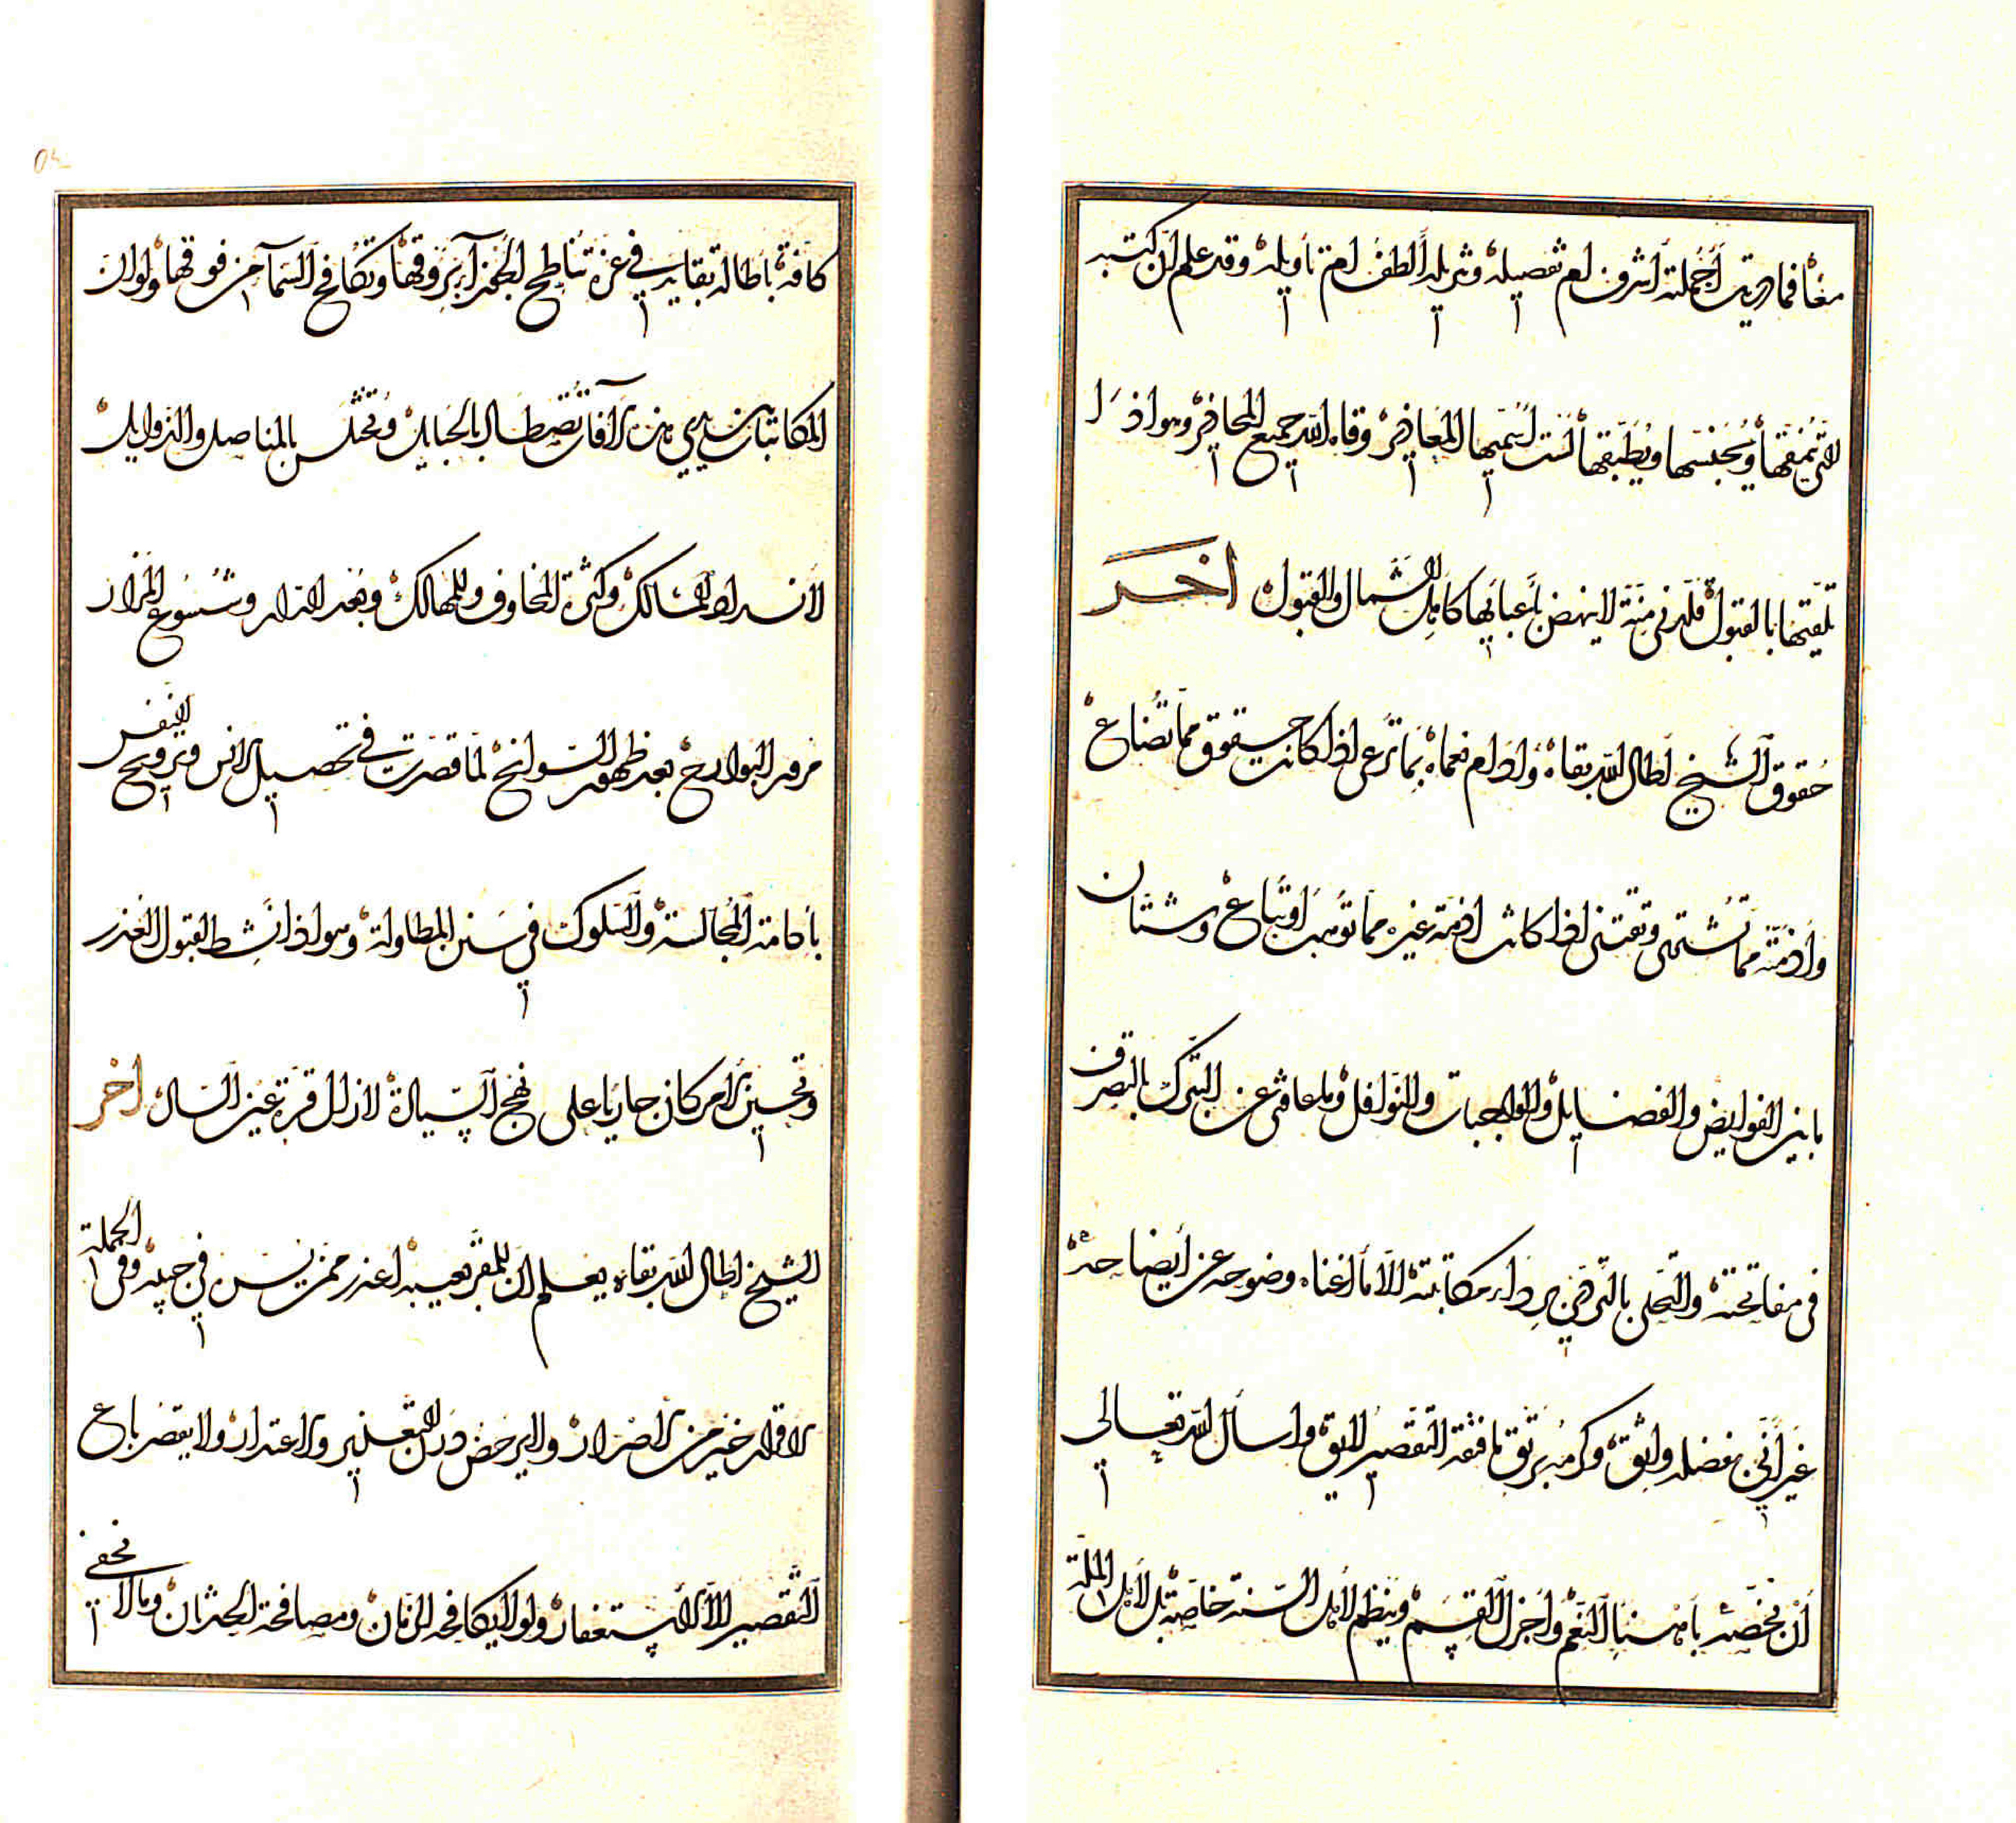 معًا فما دريت أجملته أشرف ام تفصيله وتنزيله ألطف ام تاويله وقد علم ان كتبه
التي ينمقها ويجنسها ويطبقها لست أسميها المعاذير وقاه الله جميع المحاذير وهو اذا
تلقيتها بالقبول قلدني منة لا ينهض بأعبائها كاهل الشمال والقبول اخر
حقوق الشيخ اطال الله بقاه وادام نعماه مما ترعى اذا كانت حقوق مما تضاع
واذمته مما تشتمى وتقتنى اذا كانت اذمة غيره مما توهب اوتباع وشتان
ما بين الفرايض والفضايل والواجبات والنوافل وما عاقني عن التبرك بالتصرف
في مفاتحته والتحلي بالتردي برداء مكاتبته الا ما اغناه وضوحه عن أيضاحه
غير أني بفضله واثق وكرمه يرتق ما فتقه التقصير اللايق واسأل الله تعالى
أن يخصه بأهنيا النعم واجزل القسم وينظم لاهل السنة خاصة بل لاهل الملة
كافة باطالة بقايه في عزة تناطح الجوزاء بروقها وتكافح السماء من فوقها ولو ان
المكاتبات سيدي من الآفات تصطاد بالحبايل وتختلس بالمناصل والذوابل
لانسداد المسالك وكثرة المخاوف والمهالك وبعد الدار وشسوع المزار
مرور البوارح بعد ظهور السوانح لما قصرت في تحصيل الانس وترويح النفس
باقامة المجالسة والسلوك في سنن المطاولة وهو اذا نشط لقبول العذر
وتحسين أمر كان جاريا على نهج السيادة لا زال قرة عين السادة اخر
الشيخ اطال الله بقاه يعلم ان المقر بعيبه اعذر ممن يدس في جيبه وفي الجملة
الاقرار خير من الاصرار والا يرحض درن التعذير والاعتذار ولا يقصر باع
التقصير الا الاستغفار ولولا مكافحة الزمان ومصافحة الحدثان وما لا يخفى